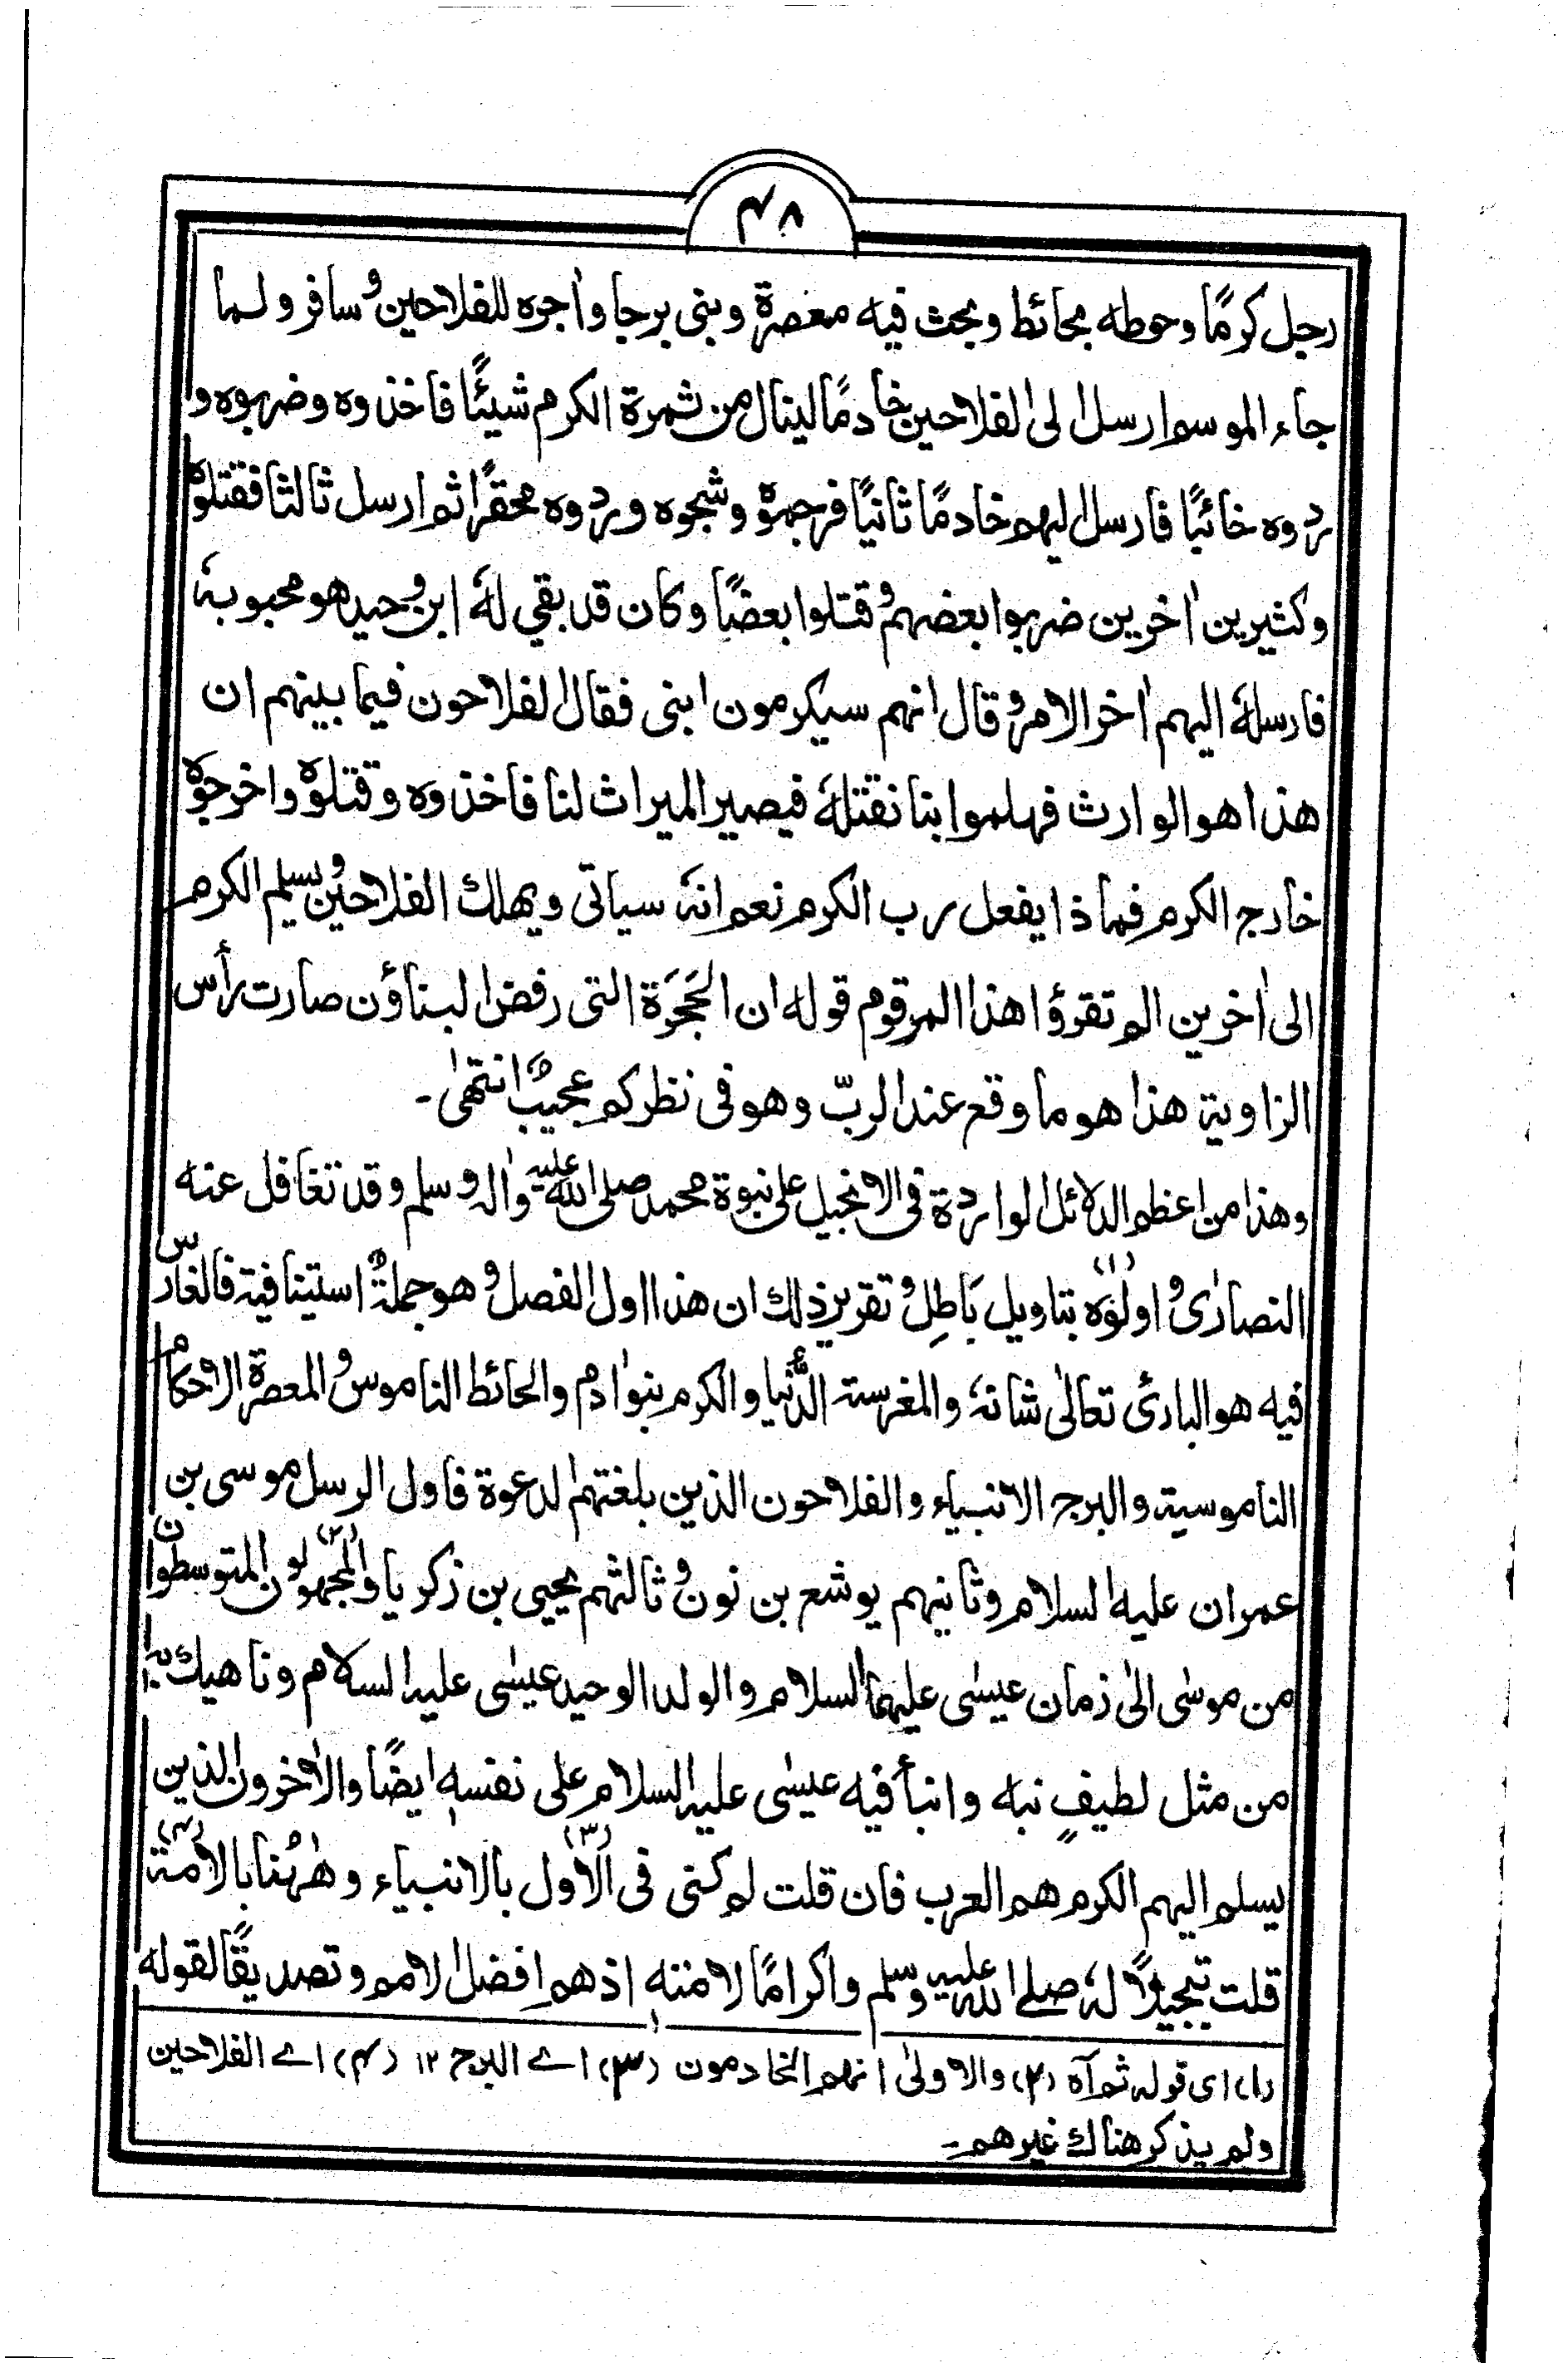 ۴۸
رجل كرمًا وحوطه بحائط وبحث فيه معصرة وبنى برجا واٰجره للفلاحين وسافر ولما
جاء الموسم ارسل الى الفلاحين خادمًا لينال من ثمرة الكرم شيئًا فاخذوه وضربوه و
ردوه خائبًا فارسل اليهم خادمًا ثانيًا فرجموه وشجوه وردوه محقرًا ثم ارسل ثالثا فقتلوه
وكثيرين اٰخرين ضربوا بعضهم وقتلوا بعضًا وكان قد بقي لهٗ ابن وحيد هو محبوبهٗ
فارسلهٗ اليهم اٰخر الامر وقال انهم سيكرمون ابنى فقال الفلاحون فيما بينهم ان
هذا هو الوارث فهلموا بنا نقتلهٗ فيصير الميراث لنا فاخذوه وقتلوه واخرجوه
خارج الكرم فماذا يفعل رب الكرم نعم انهٗ سياتى ويهلك الفلاحين ويسلم الكرم
الى اٰخرين الم تقرؤا هذا المرقوم قوله ان الحَجَرَة التى رفض البناؤن صارت رأس
الزاوية هذا هو ما وقع عند الربّ وهو فى نظركم عجيبٌ انتهىٰ۔
وهذا من اعظم الدلائل الواردة فى الانجيل على نبوة محمد صلى الله عليه واٰله وسلم وقد تغافل عنه
النصارٰى واولوٰه بتاويل بَاطِلٍ وتقرير ذلك ان هذا اول الفصل وهو جملةٌ استينافية فالغارس
فيه هو البارئ تعالىٰ شانهٗ والمغرسة الدُّنيا والكرم بنوا اٰدم والحائط الناموس والمعصرة الاحكام
الناموسية والبرج الانبياء والفلاحون الذين بلغتهم الدعوة فاول الرسل موسى بن
عمران عليه السلام وثانيهم يوشع بن نون وثالثهم يحيى بن زكريا والمجهولون المتوسطون
من موسٰى الىٰ زمان عيسٰى عليهما السلام والولد الوحيد عيسٰى عليه السلام وناهيك به
من مثل لطيفٍ نبه وانبأ فيه عيسٰى عليه السلام على نفسهٖ ايضًا والاٰخرون الذين
يسلم اليهم الكرم هم العرب فان قلت لم كنى فى الاَوّل بالانبياء وههُنا بالامة
قلت تبجيلًا لهٗ صلے الله عليه وسلم واكرامًا لامته اذ هم افضل الامم وتصديقًا لقوله
(۱) اى قوله ثم آه (۲) والاولىٰ انهم الخادمون (۳) اے البرج ۱۲ (۴) اے الفلاحين
ولم يذكر هناك غيرهم۔